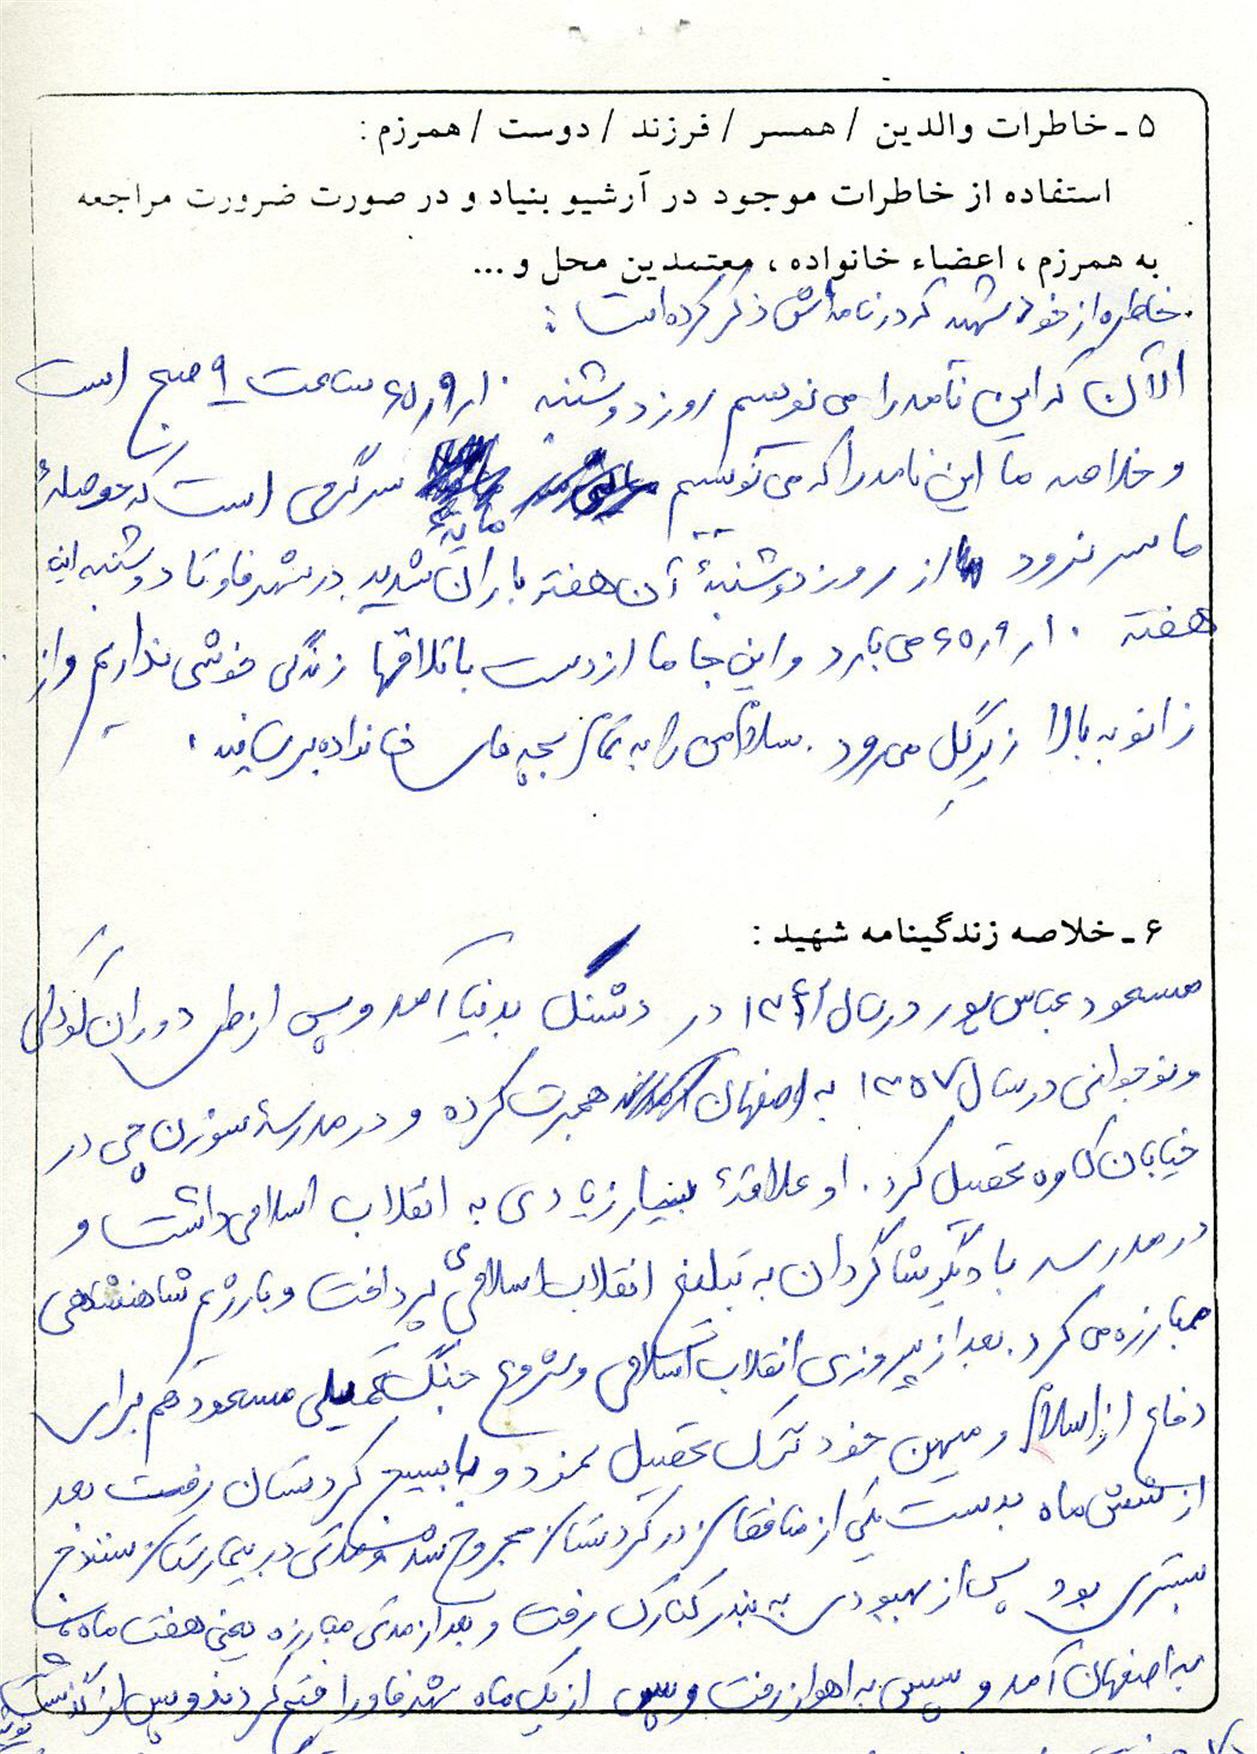 ۵ ـ خاطرات والدین / همسر / فرزند / دوست / همرزم :
استفاده از خاطرات موجود در آرشیو بنیاد و در صورت ضرورت مراجعه
به همرزم ، اعضاء خانواده ، معتمدین محل و ...
خاطره از خود شهید که در نامه‌اش ذکر کرده است :
الآن که این نامه را می نویسم روز دوشنبه ۱۰ر۹ر۶۵ ساعت ۹ صبح است
و خلاصه ما این نامه را که می نویسیم مایهٔ سرگرمی است که حوصلهٔ
ما سر نرود از روز دوشنبهٔ آن هفته باران شدید در شهر فاو تا دوشنبه این
هفته ۱۰ر۹ر۶۵ می بارد و این جا ما از دست باتلاقها زندگی خوشی نداریم و از
زانو به بالا زیر گل می رود . سلام من را به تمام بچه های خانواده برسانید .
۶ ـ خلاصه زندگینامه شهید :
مسعود عباس پور در سال در دشتک بدنیا آمد و پس از طی دوران کودکی
و نوجوانی در سال ۱۳۵۷ به اصفهان هجرت کرده و در مدرسهٔ سوزن چی در
خیابان کاوه تحصیل کرد . او علاقهٔ بسیار زیادی به انقلاب اسلامی داشت و
در مدرسه با دیگر شاگردان به تبلیغ انقلاب اسلامی می پرداخت و با رژیم شاهنشاهی
مبارزه می کرد . بعد از پیروزی انقلاب اسلامی و شروع جنگ تحمیلی مسعود هم برای
دفاع از اسلام و میهن خود ترک تحصیل نمود و با بسیج کردستان رفت بعد
از شش ماه بدست یکی از منافقان در کردستان مجروح شد و مدتی در بیمارستان سنندج
بستری بود پس از بهبودی به بندر کنارک رفت و بعد از مدتی مبارزه یعنی هفت ماه
به اصفهان آمد و سپس به اهواز رفت و پس از یک ماه شهر فاو را فتح کردند و پس از گذشت